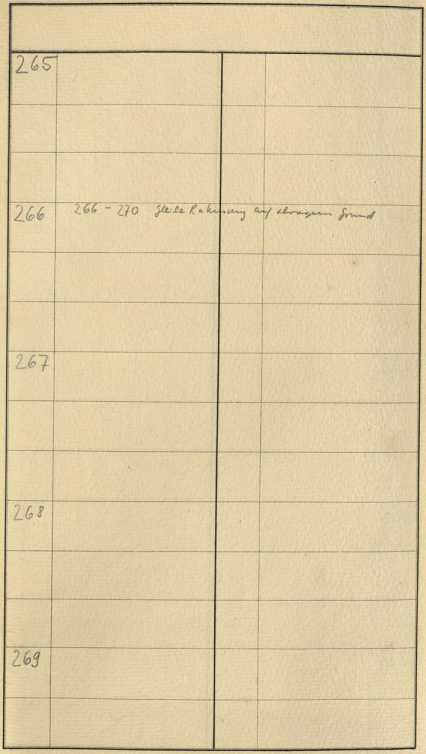 265
266 266 - 270 Rahmung auf Grund
267
268
269